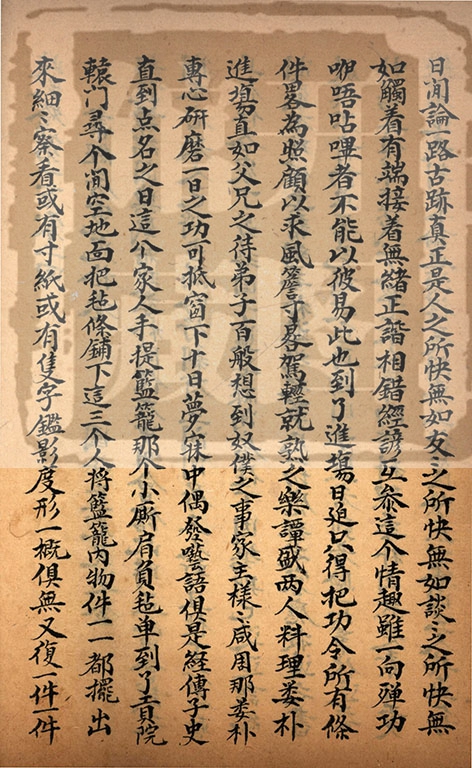 日閒論一路古跡真正是人之所快無如友〻之所快無如談〻之所快無
如觸着有端接着無緒正諧相錯經諺互叅這个情趣雖一向殫功
咿唔呫嗶者不能以彼易此也到了進塲日迫只得把功令所有條
件畧為照顧以求風簷寸晷駕輕就熟之樂譚盛两人料理婁朴
進塲真如父兄之待弟子百般想到奴僕之事家主樣〻咸周那婁朴
專心研磨一日之功可抵窗下十日夢寐中偶發囈語俱是經傳子史
直到点名之日這个家人手提籃籠那个小厮肩負毡单到了貢院
轅门尋个閒空地面把毡條鋪下這三个人將籃籠內物件一一都擺出
來細〻察看或有寸紙或有隻字鑑影度形一概俱無又復一件一件